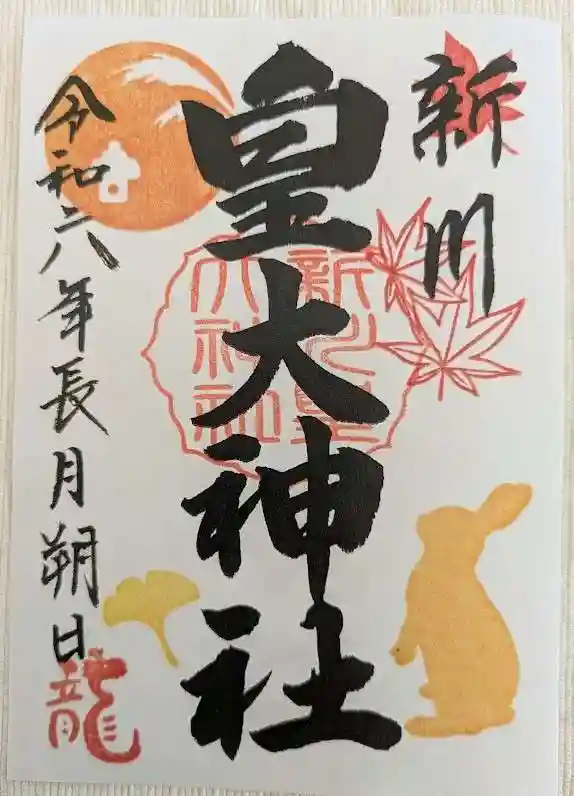 新川
皇大神社
新川皇
大神社
令和六年長月朔日
龍